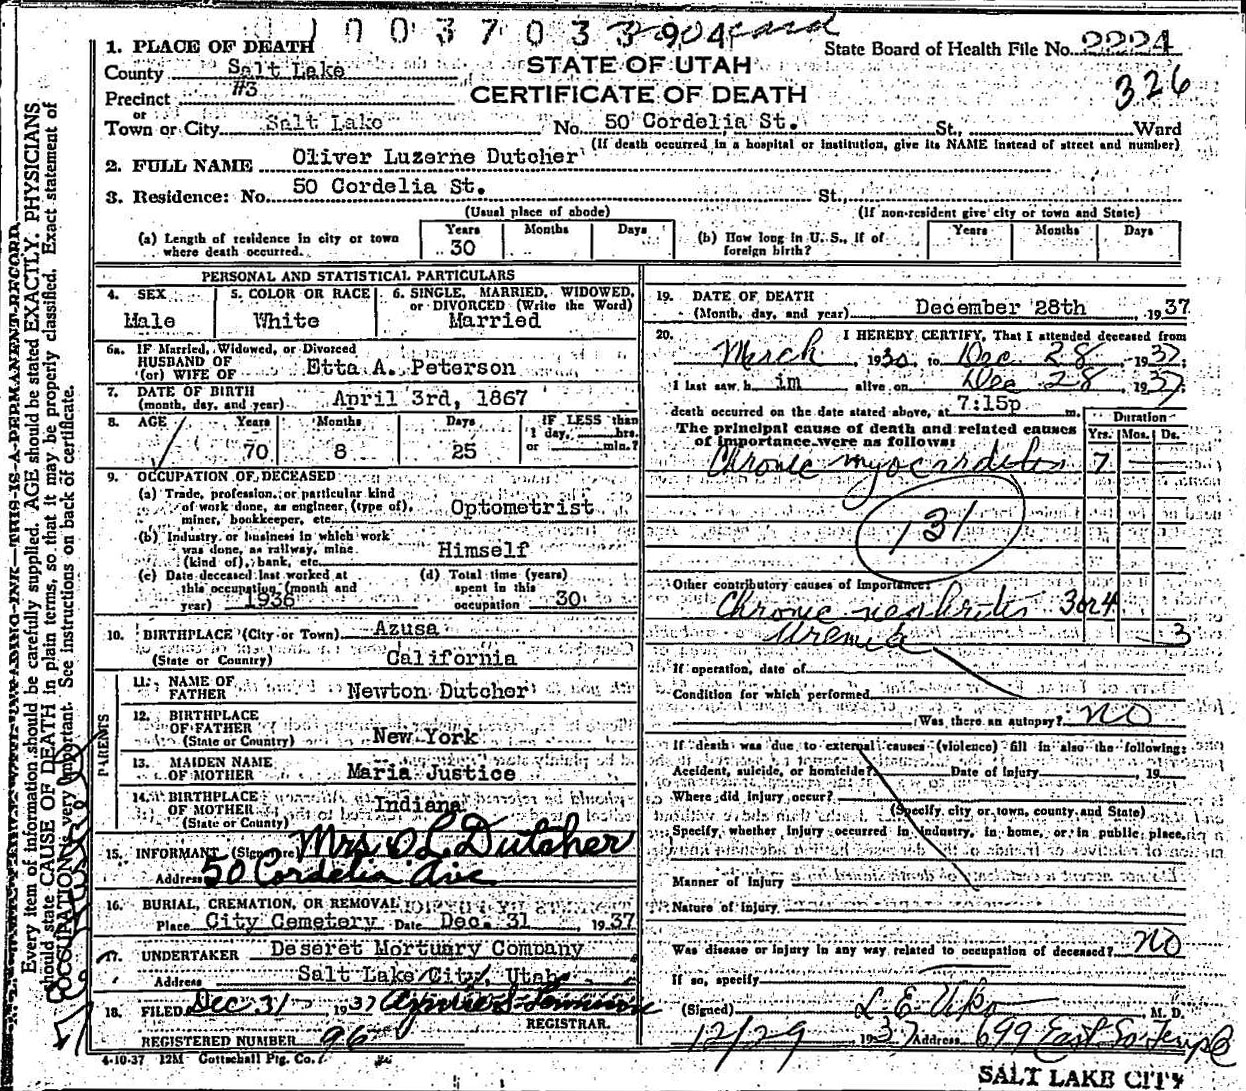 1003703 3904 card
1. PLACE OF DEATH State Board of Health File No. 2224
County Salt Lake STATE OF UTAH 326
Precinct #3 CERTIFICATE OF DEATH
or
Town or City Salt Lake No. 50 Cordelia St. St., Ward
(If death occurred in a hospital or institution, give its NAME instead of street and number)
2. FULL NAME Oliver Luzerne Dutcher
3. Residence: No. 50 Cordelia St. St.,
(Usual place of abode) (If non-resident give city or town and State)
(a) Length of residence in city or town where death occurred. Years 30 Months Days (b) How long in U. S., if of foreign birth? Years Months Days
PERSONAL AND STATISTICAL PARTICULARS
4. SEX 5. COLOR OR RACE 6. SINGLE, MARRIED, WIDOWED, or DIVORCED (Write the Word)
Male White Married
6a. IF Married, Widowed, or Divorced
HUSBAND OF
(or) WIFE OF Etta A. Peterson
7. DATE OF BIRTH
(month, day, and year) April 3rd, 1867
8. AGE Years Months Days IF LESS than
1 day, hrs.
70 8 25 or min.?
9. OCCUPATION OF DECEASED
(a) Trade, profession, or particular kind
of work done, as engineer, (type of),
miner, bookkeeper, etc. Optometrist
(b) Industry or business in which work
was done, as railway, mine
(kind of), bank, etc. Himself
(c) Date deceased last worked at
this occupation (month and
year) 1936
(d) Total time (years)
spent in this
occupation 30
10. BIRTHPLACE (City or Town) Azusa
(State or Country) California
PARENTS
11. NAME OF
FATHER Newton Dutcher
12. BIRTHPLACE
OF FATHER
(State or Country) New York
13. MAIDEN NAME
OF MOTHER Maria Justice
14. BIRTHPLACE
OF MOTHER
(State or County) Indiana
15. INFORMANT (Signature) Mrs O L Dutcher
Address 50 Cordelia Ave
16. BURIAL, CREMATION, OR REMOVAL
Place City Cemetery Date Dec. 31 1937
17. UNDERTAKER Deseret Mortuary Company
Address Salt Lake City, Utah
18. FILED Dec 31 1937
REGISTRAR.
REGISTERED NUMBER 96
4-10-37 12M Gottschall Ptg. Co.
19. DATE OF DEATH
(Month, day, and year) December 28th, 1937
20. I HEREBY CERTIFY, That I attended deceased from
March 1930, to Dec 28, 1937.
I last saw h im alive on Dec 28, 1937.
death occurred on the date stated above, at 7:15p m.
The principal cause of death and related causes
of importance were as follows:
Duration
Yrs. Mos. Ds.
Chronic myocarditis 7
131
Other contributory causes of importance:
Chronic nephritis 3 or 4
Uremia 3
If operation, date of
Condition for which performed
Was there an autopsy? NO
If death was due to external causes (violence) fill in also the following:
Accident, suicide, or homicide? Date of Injury 19
Where did injury occur?
(Specify city or town, county and State)
Specify whether injury occurred in industry, in home, or in public place.
Manner of Injury
Nature of injury
Was disease or injury in any way related to occupation of deceased? NO
If so, specify
(Signed) M. D.
12/29 1937 Address 699 East So Temple
SALT LAKE CITY
Every item of information should be carefully supplied. AGE should be stated EXACTLY. PHYSICIANS
should state CAUSE OF DEATH in plain terms, so that it may be properly classified. Exact statement of
OCCUPATION is very important. See instructions on back of certificate.